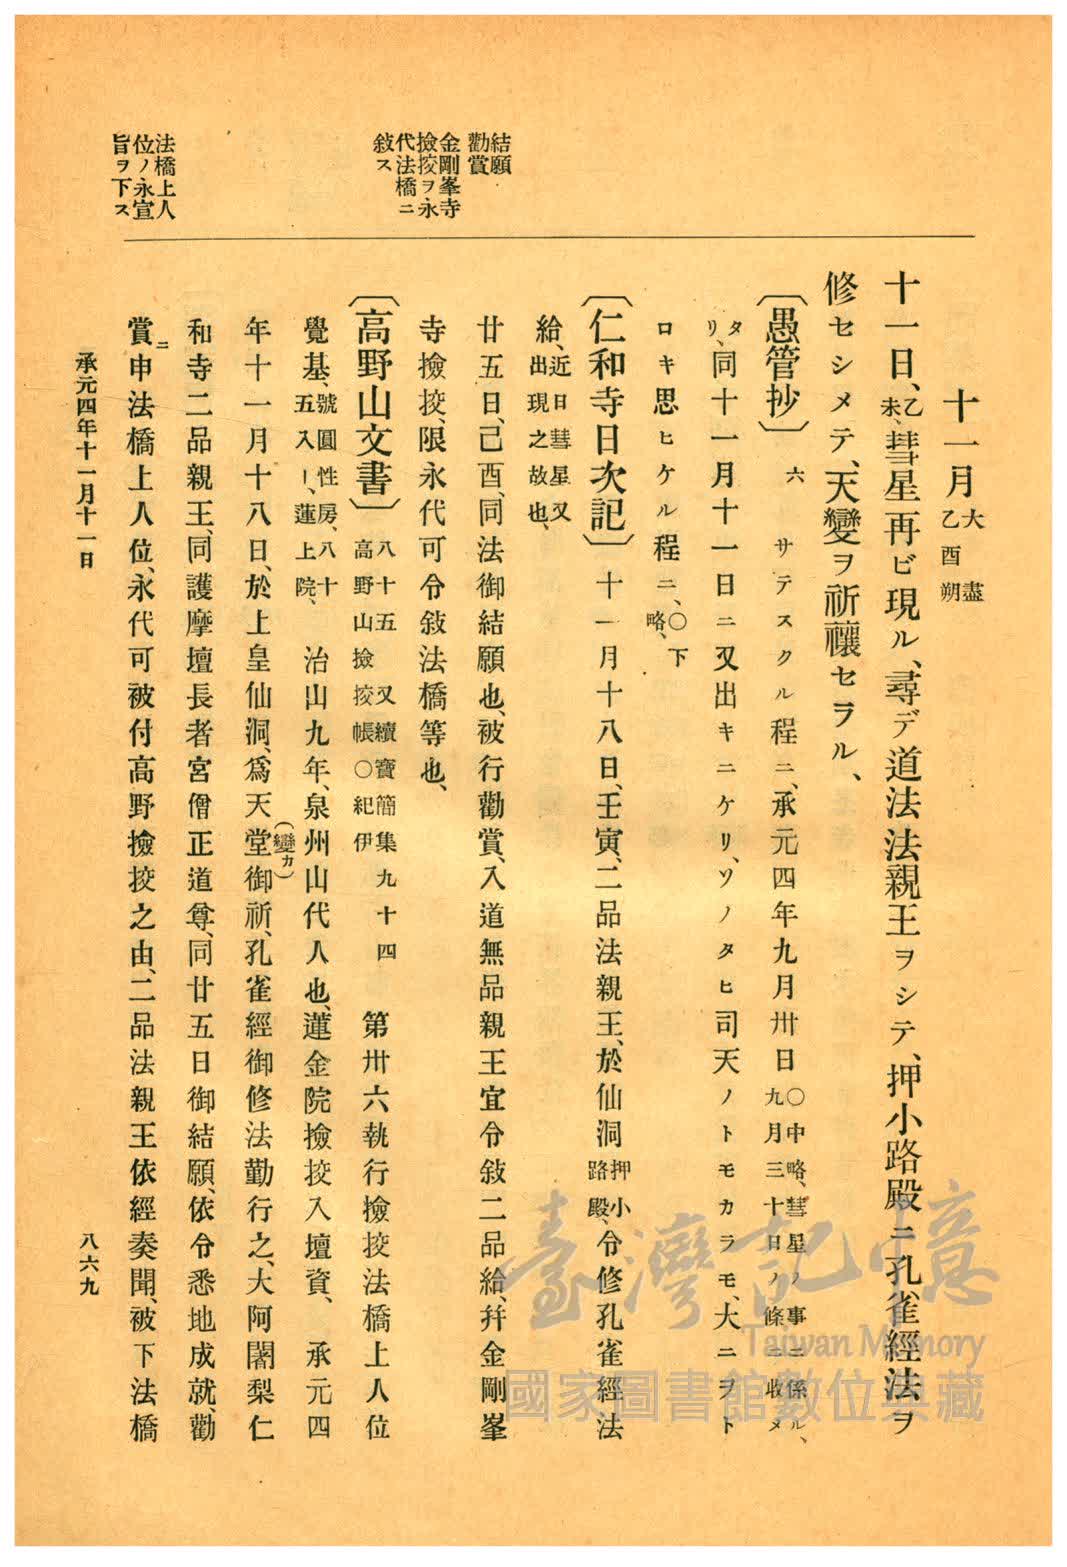 十一月大盡乙酉朔
十一日、乙未、彗星再ビ現ル、尋デ道法法親王ヲシテ、押小路殿ニ孔雀經法ヲ
修セシメテ、天變ヲ祈禳セラル、
〔愚管抄〕六 サテスクル程ニ、承元四年九月卅日〇中略、彗星ノ事ニ係ル、九月三十日ノ條ニ收メ
タリ、同十一月十一日ニ又出キニケリ、ソノタヒ司天ノトモカラモ、大ニヲト
ロキ思ヒケル程ニ、〇下略、
〔仁和寺日次記〕十一月十八日、壬寅、二品法親王、於仙洞押小路殿、令修孔雀經法
給、近日彗星又出現之故也、
廿五日、己酉、同法御結願也、被行勸賞、入道無品親王宜令敍二品給、幷金剛峯
寺撿挍、限永代可令敍法橋等也、
〔高野山文書〕八十五 又續寶簡集九十四 高野山撿挍帳〇紀伊 第卅六執行撿挍法橋上人位
覺基、號圓性房、八十五入ー、蓮上院、 治山九年、泉州山代人也、蓮金院撿挍入壇資、 承元四
年十一月十八日、於上皇仙洞、爲天堂(變カ)御祈、孔雀經御修法勤行之、大阿闍梨仁
和寺二品親王、同護摩壇長者宮僧正道尊、同廿五日御結願、依令悉地成就、勸
賞ニ申法橋上人位、永代可被付高野撿挍之由、二品法親王依經奏聞、被下法橋
結願
勸賞
金剛峯寺
撿挍ヲ永
代法橋ニ
敍ス
法橋上人
位ノ永宣
旨ヲ下ス
承元四年十一月十一日
八六九
臺灣記憶
Taiwan Memory
國家圖書館數位典藏